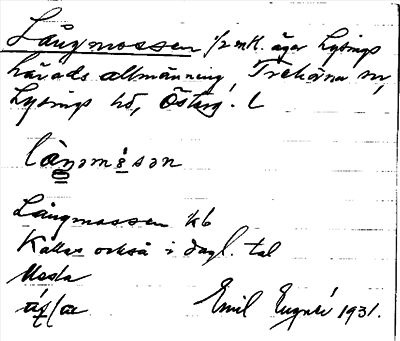 Långmossen 1/2 mtl. äger Lysings
härads allmänning, Trehörna sn,
Lysings hd, Österg. L
låŋmosən
Långmossen kb
Kallas också i dagl. tal
Emil 1931.